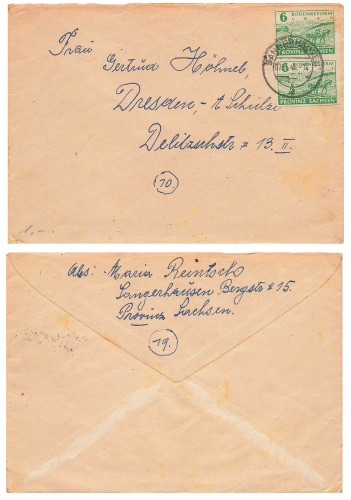 6 BODENREFORM
1945
PROVINZ SACHSEN
6 BODENREFORM
PROVINZ SACHSEN
Frau
Gertrud Höhne,
Dresden,-A
Delitzschstr # 13. II.
(10.)
1.-
Abs: Maria Reintsch
Sangerhausen Bergstr # 15.
Provinz Sachsen.
(19.)